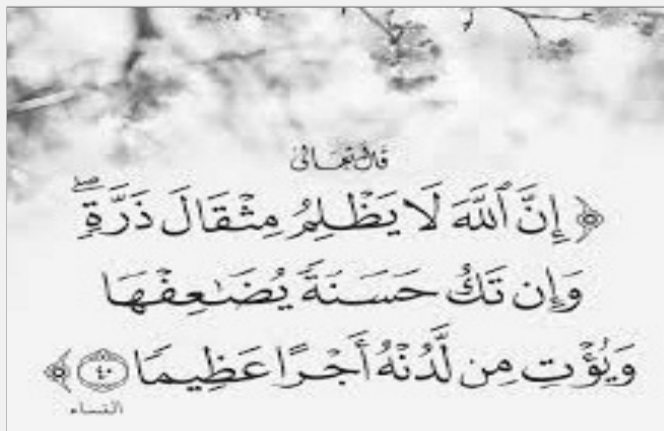 قال تعالى
﴿ إِنَّ ٱللَّهَ لَا يَظۡلِمُ مِثۡقَالَ ذَرَّةٖۖ
وَإِن تَكُ حَسَنَةٗ يُضَٰعِفۡهَا
وَيُؤۡتِ مِن لَّدُنۡهُ أَجۡرًا عَظِيمٗا ٤٠ ﴾
النساء